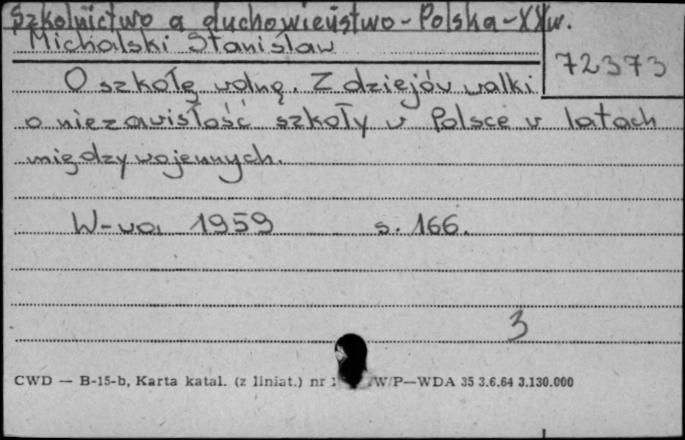 Szkolnictwo a duchowieństwo - Polska - XX w.
Michalski Stanisław
72373
O szkołę wolną. Z dziejów walki
o niezawisłość szkoły w Polsce w latach
międzywojennych.
W-wa, 1959 s. 166.
3
CWD — B-15-b, Karta katal. (z liniat.) nr 1 W/P—WDA 35 3.6.64 3.130.000